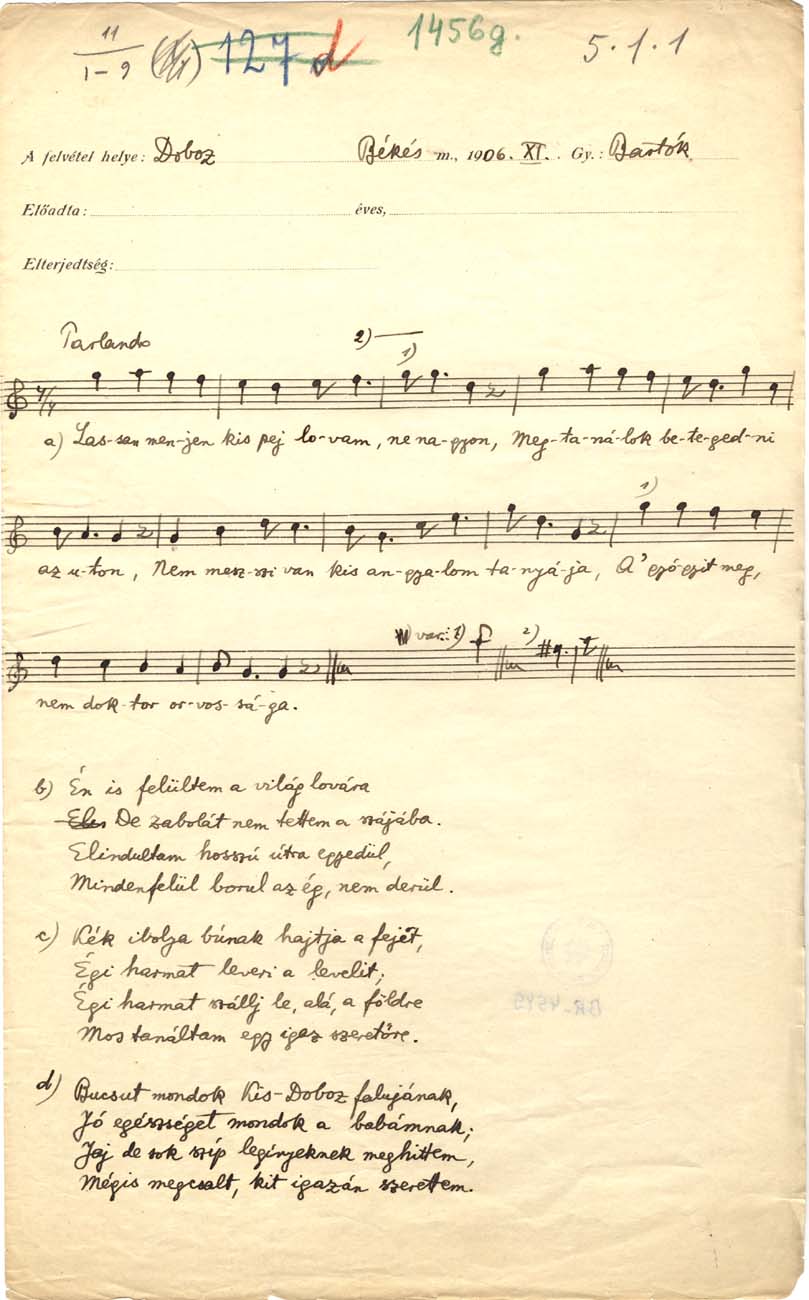 11
1-9 127 d 1456g. 5.1.1
A felvétel helye: Doboz Békés m., 1906. XI. Gy.: Bartók
Előadta: éves,
Elterjedtség:
Parlando
2) 1)
a) Las-san men-jen kis pej lo-vam, ne na-gyon, Meg-ta-ná-lok be-te-ged-ni
1)
az u-ton, Nem mesz-szi van kis an-gya-lom ta-nyá-ja, A' gyó-gyit meg,
var.: 1) 2)
nem dok-tor or-vos-sá-ga.
b) Én is felültem a világ lovára
De zabolát nem tettem a szájába.
Elindultam hosszú útra egyedül,
Mindenfelül borul az ég, nem derül.
c) Kék ibolya búnak hajtja a fejét,
Égi harmat leveri a levelit;
Égi harmat szállj le, alá, a földre
Mos tanáltam egy igaz szeretőre.
BR-4545
d) Bucsut mondok Kis-Doboz falujának,
Jó egészséget mondok a babámnak;
Jaj de sok szíp legínyeknek meghittem,
Mégis megcsalt, kit igazán szerettem.